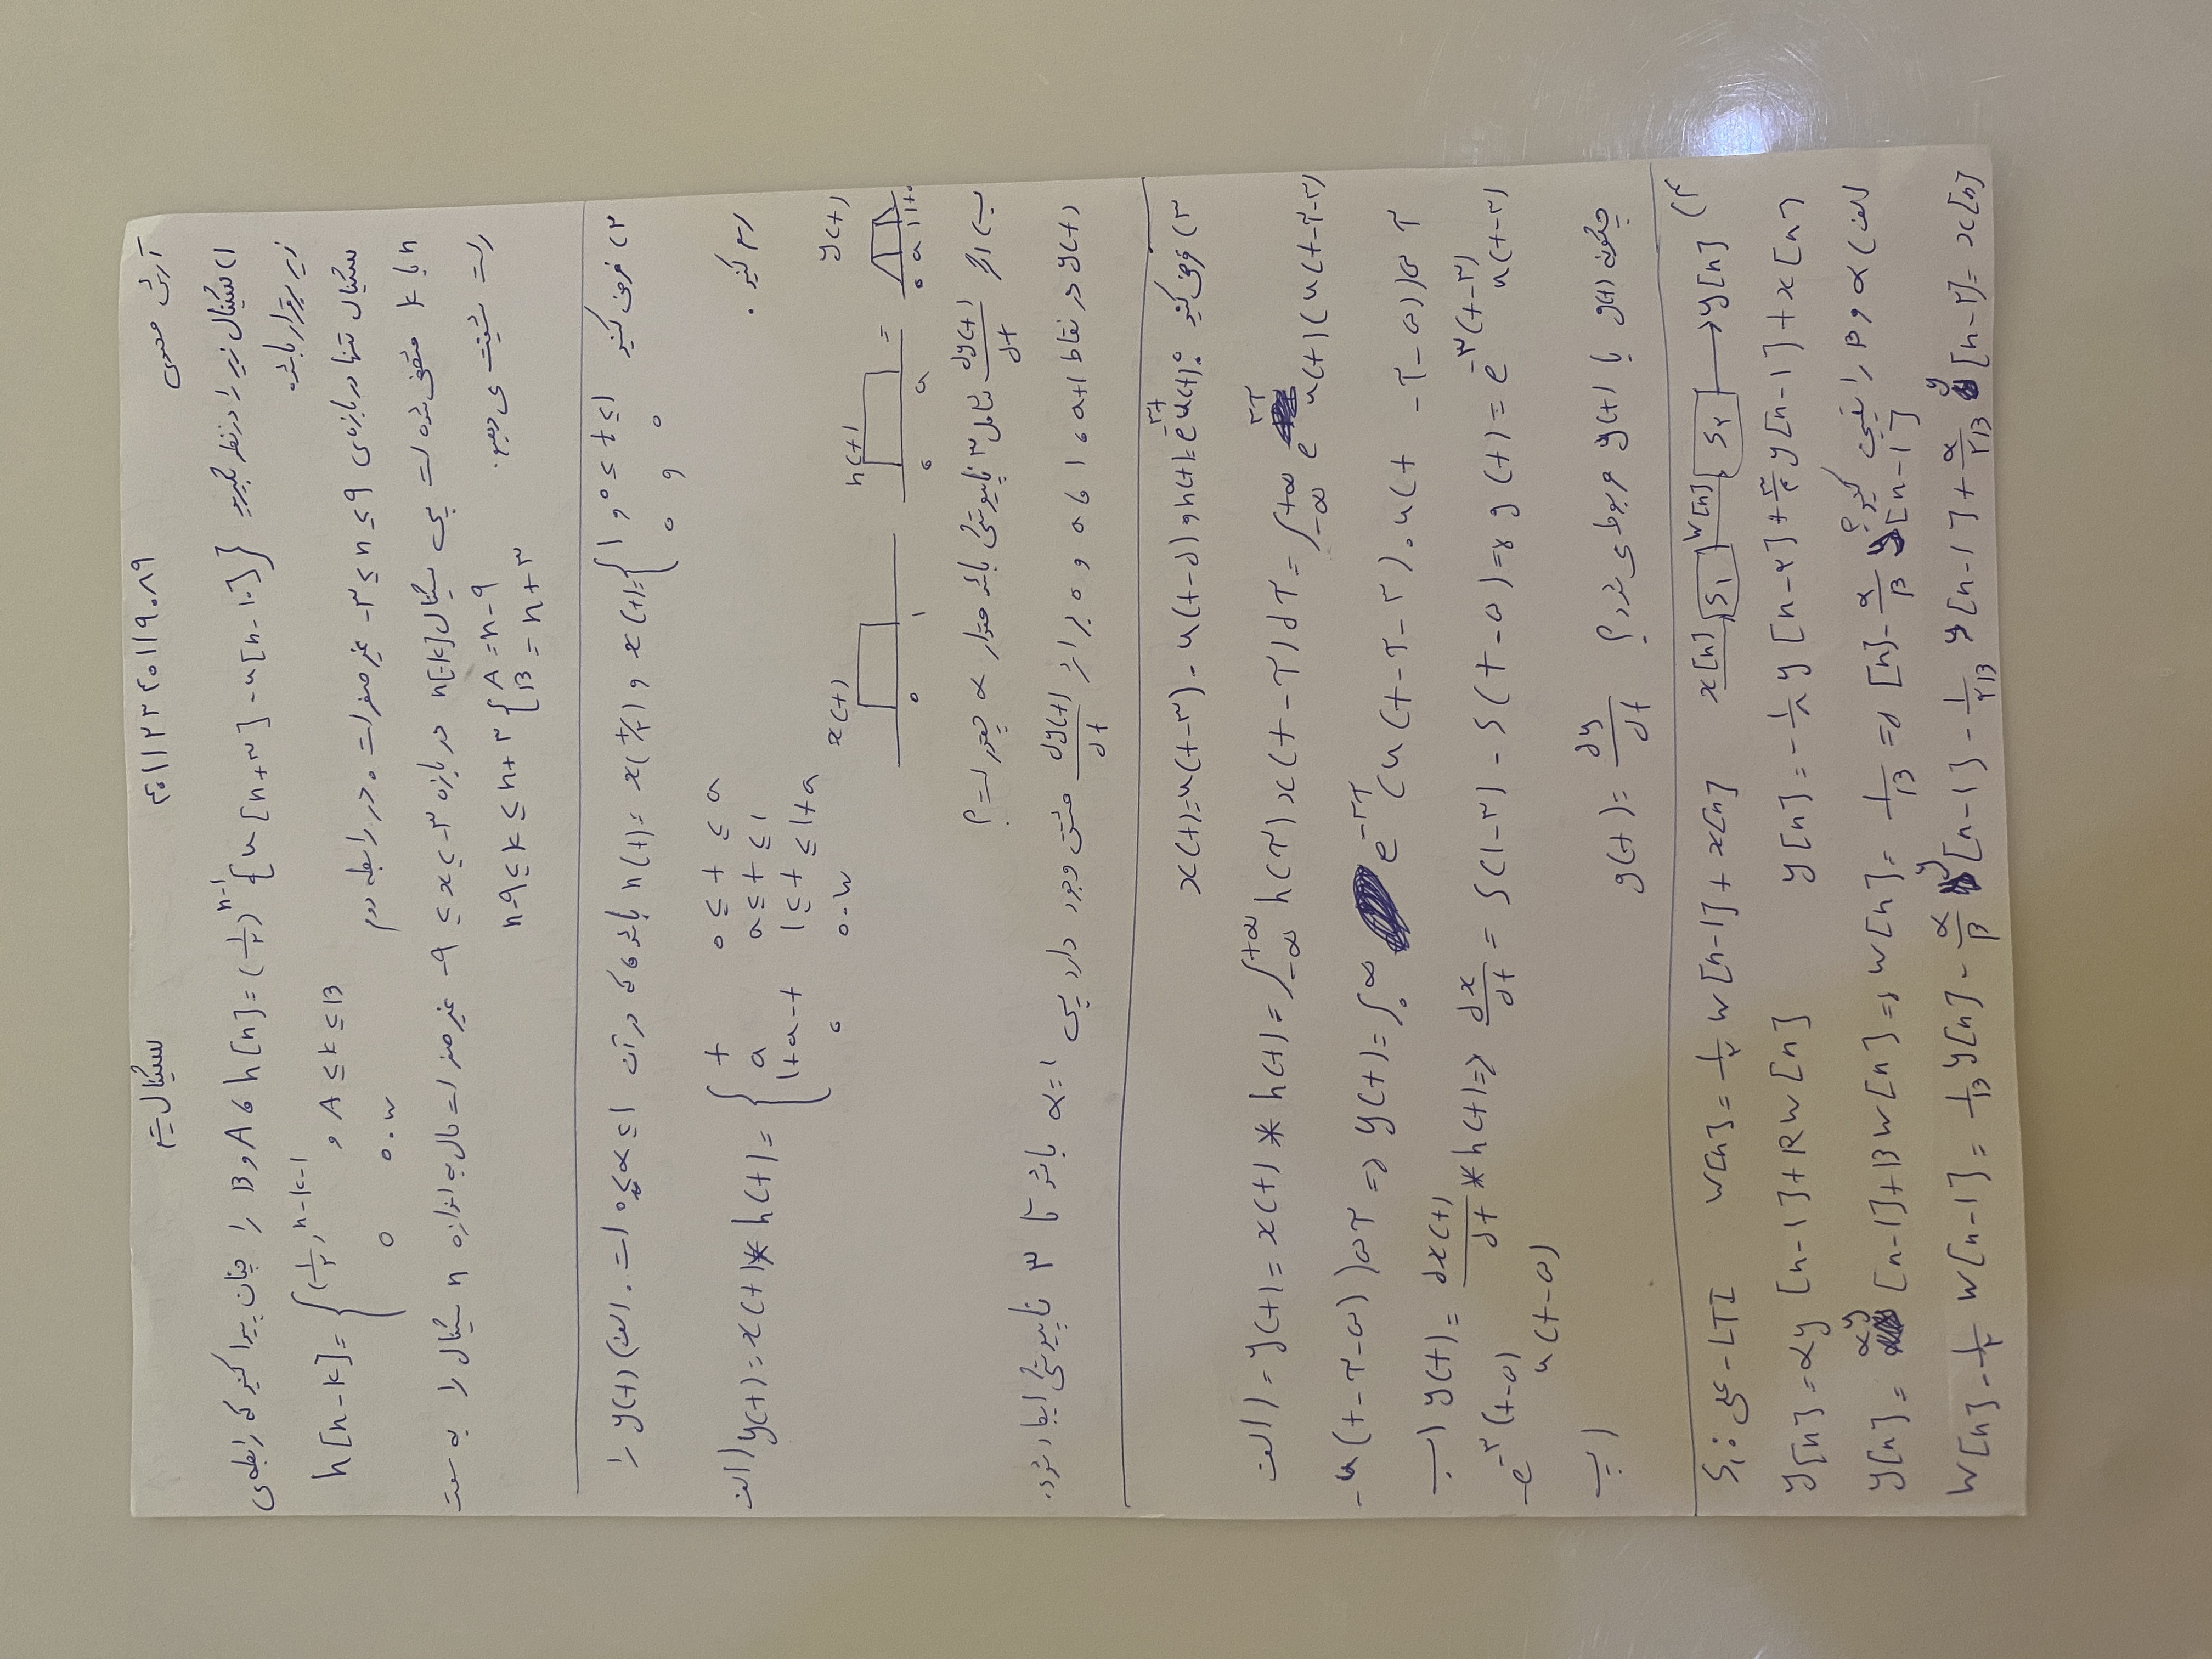 آرش ۴۰۱۱۲۳۲۰۱۱۹۰۸۹ سیگنال سیستم
۱) سیگنال زیر را در نظر بگیرید h[n] = (1/۲)^{n-1} {u[n+۳] - u[n-۱۰]} ، A و B را چنان پیدا کنید که رابطه‌ی
زیر برقرار باشد.
h[n-k] = { (1/۲)^{n-k-1} , A ≤ k ≤ B
0 o.w
سیگنال تنها در بازه‌ی -۳ ≤ n ≤ ۹ غیر صفر است. در رابطه دوم
n با k منفی شده است پس سیگنال h[-k] در بازه -۹ ≤ x ≤ -۳ غیر صفر است حال به اندازه n سیگنال را به سمت
راست شیفت می دهیم. n-۹ ≤ k ≤ n+۳ { A = n-۹
B = n+۳
۲) فرض کنید x(t) = { 1 , 0 ≤ t ≤ 1 و h(t) = x(t/۲) باشد، که در آن 0 ≤ α ≤ 1 است. الف) y(t) را
0 , 0
رسم کنید.
الف) y(t) = x(t) * h(t) = { t 0 ≤ t ≤ a
a a ≤ t ≤ 1
1+a-t 1 ≤ t ≤ 1+a
0 o.w
x(t) h(t) = y(t)
0 1 0 a 0 a 1 1+a
ب) اگر dy(t)/dt شامل ۳ ناپیوستگی باشد مقدار α چقدر است؟
y(t) در نقاط a+1 ، 1 ، a و 0 از dy(t)/dt مشتق وجود دارد پس α=1 باشد تا ۳ ناپیوستگی ایجاد شود.
۳) فرض کنید: x(t) = u(t-۳) - u(t-۵) و h(t) = e^{-۳t} u(t)
الف) = y(t) = x(t) * h(t) = ∫_{-∞}^{+∞} h(τ) x(t-τ) dτ = ∫_{-∞}^{+∞} e^{۳τ} u(t) (u(t-τ-۳)
-u(t-τ-۵)) dτ ⇒ y(t) = ∫_0^∞ e^{-۳τ} (u(t-τ-۳) . u(t -τ-۵)) dτ
ب) y(t) = dx(t)/dt * h(t) ⇒ dx/dt = δ(1-۳) - δ(t-۵) ⇒ g(t) = e^{-۳(t-۳)} u(t-۳)
-e^{-۳(t-۵)} u(t-۵)
پ) چگونه g(t) با y(t) مربوط می شود؟ g(t) = dy/dt
۴) x[n] S۱ W[n] S۲ → y[n] W[n] = 1/۲ W[n-1] + x[n] S۱: علی - LTI
y[n] = αy[n-1] + βW[n] y[n] = -1/۸ y[n-۲] + ۳/۴ y[n-1] + x[n]
الف) α و β را تعیین کنید؟
y[n] = αy[n-1] + βW[n] ⇒ W[n] = 1/β ⇒ [n] - α/β y[n-1]
W[n] - 1/۲ W[n-1] = 1/β y[n] - α/β y[n-1] - 1/۲β y[n-1] + α/۲β y[n-۲] = x[n]